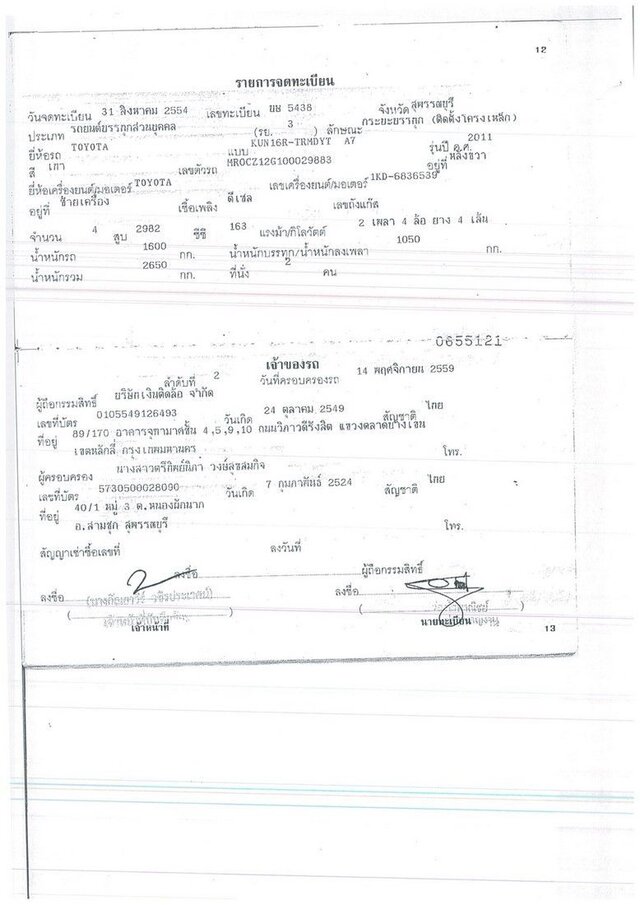 12
รายการจดทะเบียน
วันจดทะเบียน 31 สิงหาคม 2554 เลขทะเบียน บษ 5438 จังหวัด สุพรรณบุรี
ประเภท รถยนต์บรรทุกส่วนบุคคล (รย. 3 ) ลักษณะ กระบะบรรทุก (ติดตั้งโครงเหล็ก)
ยี่ห้อรถ TOYOTA แบบ KUN16R-TRMDYT A7 รุ่นปี ค.ศ. 2011
สี เทา เลขตัวรถ MROCZ12G100029883 อยู่ที่ หลังขวา
ยี่ห้อเครื่องยนต์/มอเตอร์ TOYOTA เลขเครื่องยนต์/มอเตอร์ 1KD-6836539
อยู่ที่ ซ้ายเครื่อง เชื้อเพลิง ดีเซล เลขถังแก๊ส
จำนวน 4 สูบ 2982 ซีซี 163 แรงม้า/กิโลวัตต์ 2 เพลา 4 ล้อ ยาง 4 เส้น
น้ำหนักรถ 1600 กก. น้ำหนักบรรทุก/น้ำหนักลงเพลา 1050 กก.
น้ำหนักรวม 2650 กก. ที่นั่ง 2 คน
0655121
เจ้าของรถ
ลำดับที่ 2 วันที่ครอบครองรถ 14 พฤศจิกายน 2559
ผู้ถือกรรมสิทธิ์ บริษัท เงินติดล้อ จำกัด
เลขที่บัตร 0105549126493 วันเกิด 24 ตุลาคม 2549 สัญชาติ ไทย
ที่อยู่ 89/170 อาคารจุฑามาศชั้น 4,5,9,10 ถนนวิภาวดีรังสิต แขวงตลาดบางเขน
เขตหลักสี่ กรุงเทพมหานคร โทร.
ผู้ครอบครอง นางสาวตรีทิพย์นิภา วงษ์สุขสมกิจ
เลขที่บัตร 5730500028090 วันเกิด 7 กุมภาพันธ์ 2524 สัญชาติ ไทย
ที่อยู่ 40/1 หมู่ 3 ต.หนองผักนาก
อ.สามชุก สุพรรณบุรี โทร.
สัญญาเช่าซื้อเลขที่ ลงวันที่
ลงชื่อ ผู้ถือกรรมสิทธิ์
ลงชื่อ ลงชื่อ
( ) ( )
เจ้าหน้าที่ นายทะเบียน 13